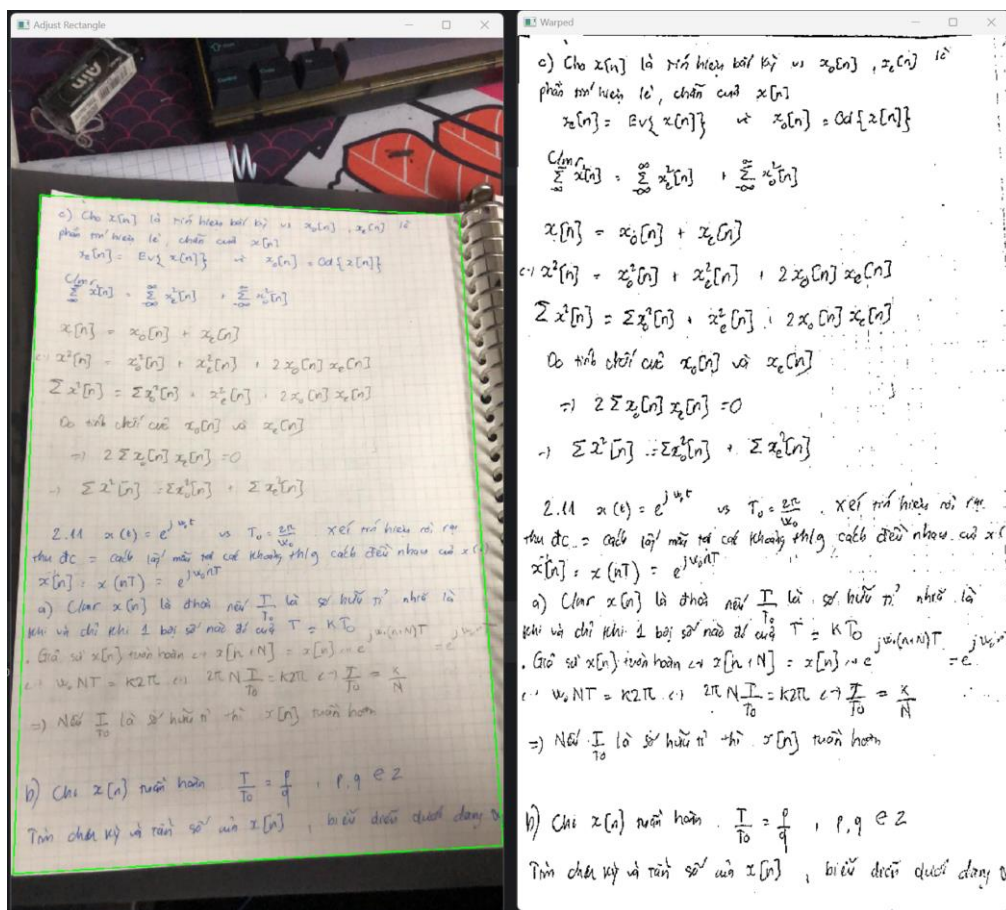 Adjust Rectangle
Ain
c) Cho x[n] là tín hiệu bất kỳ vs x₀[n], xₑ[n] là
phần tín hiệu lẻ, chẵn của x[n]
xₑ[n] = Ev{x[n]} và x₀[n] = Od{x[n]}
C/mr
∑ x²[n] = ∑ xₑ²[n] + ∑ x₀²[n]
x[n] = x₀[n] + xₑ[n]
x²[n] = x₀²[n] + xₑ²[n] + 2x₀[n] xₑ[n]
∑ x²[n] = ∑x₀²[n] + xₑ²[n] + 2x₀[n] xₑ[n]
Do tính chất của x₀[n] và xₑ[n]
=> 2∑x₀[n] xₑ[n] = 0
-> ∑x²[n] = ∑x₀²[n] + ∑xₑ²[n]
2.11 x(t) = e^{jω₀t} vs T₀ = 2π/ω₀ . xét tín hiệu rời rạc
thu đc = cách lấy mẫu tại các khoảng th/g cách đều nhau của x(
x[n] = x(nT) = e^{jω₀nT}
a) C/mr x[n] là nếu T/T₀ là số hữu tỉ nhở là
khi và chỉ khi 1 bội số nào đó của T = KT₀
. Giả sử x[n] tuần hoàn <-> x[n+N] = x[n] <-> e^{jω₀(n+N)T} = e^{jω₀nT}
<-> ω₀NT = K2π <-> 2πN T/T₀ = K2π <-> T/T₀ = K/N
=> Nếu T/T₀ là số hữu tỉ thì x[n] tuần hoàn
b) Cho x[n] tuần hoàn T/T₀ = p/q , p,q e Z
Tìm chu kỳ và tần số của x[n] , biểu diễn dưới dạng
Warped
c) Cho x[n] là tín hiệu bất kỳ vs x₀[n], xₑ[n] là
phần tín hiệu lẻ, chẵn của x[n]
xₑ[n] = Ev{x[n]} và x₀[n] = Od{x[n]}
C/mr
∑ x²[n] = ∑ xₑ²[n] + ∑ x₀²[n]
x[n] = x₀[n] + xₑ[n]
x²[n] = x₀²[n] + xₑ²[n] + 2x₀[n] xₑ[n]
∑ x²[n] = ∑x₀²[n] + xₑ²[n] + 2x₀[n] xₑ[n]
Do tính chất của x₀[n] và xₑ[n]
=> 2∑x₀[n] xₑ[n] = 0
-> ∑x²[n] = ∑x₀²[n] + ∑xₑ²[n]
2.11 x(t) = e^{jω₀t} vs T₀ = 2π/ω₀ . xét tín hiệu rời rạc
thu đc = cách lấy mẫu tại các khoảng th/g cách đều nhau của x(
x[n] = x(nT) = e^{jω₀nT}
a) C/mr x[n] là nếu T/T₀ là số hữu tỉ nhở là
khi và chỉ khi 1 bội số nào đó của T = KT₀
. Giả sử x[n] tuần hoàn <-> x[n+N] = x[n] <-> e^{jω₀(n+N)T} = e^{jω₀nT}
<-> ω₀NT = K2π <-> 2πN T/T₀ = K2π <-> T/T₀ = K/N
=> Nếu T/T₀ là số hữu tỉ thì x[n] tuần hoàn
b) Cho x[n] tuần hoàn . T/T₀ = p/q , p,q e Z
Tìm chu kỳ và tần số của x[n] , biểu diễn dưới dạng